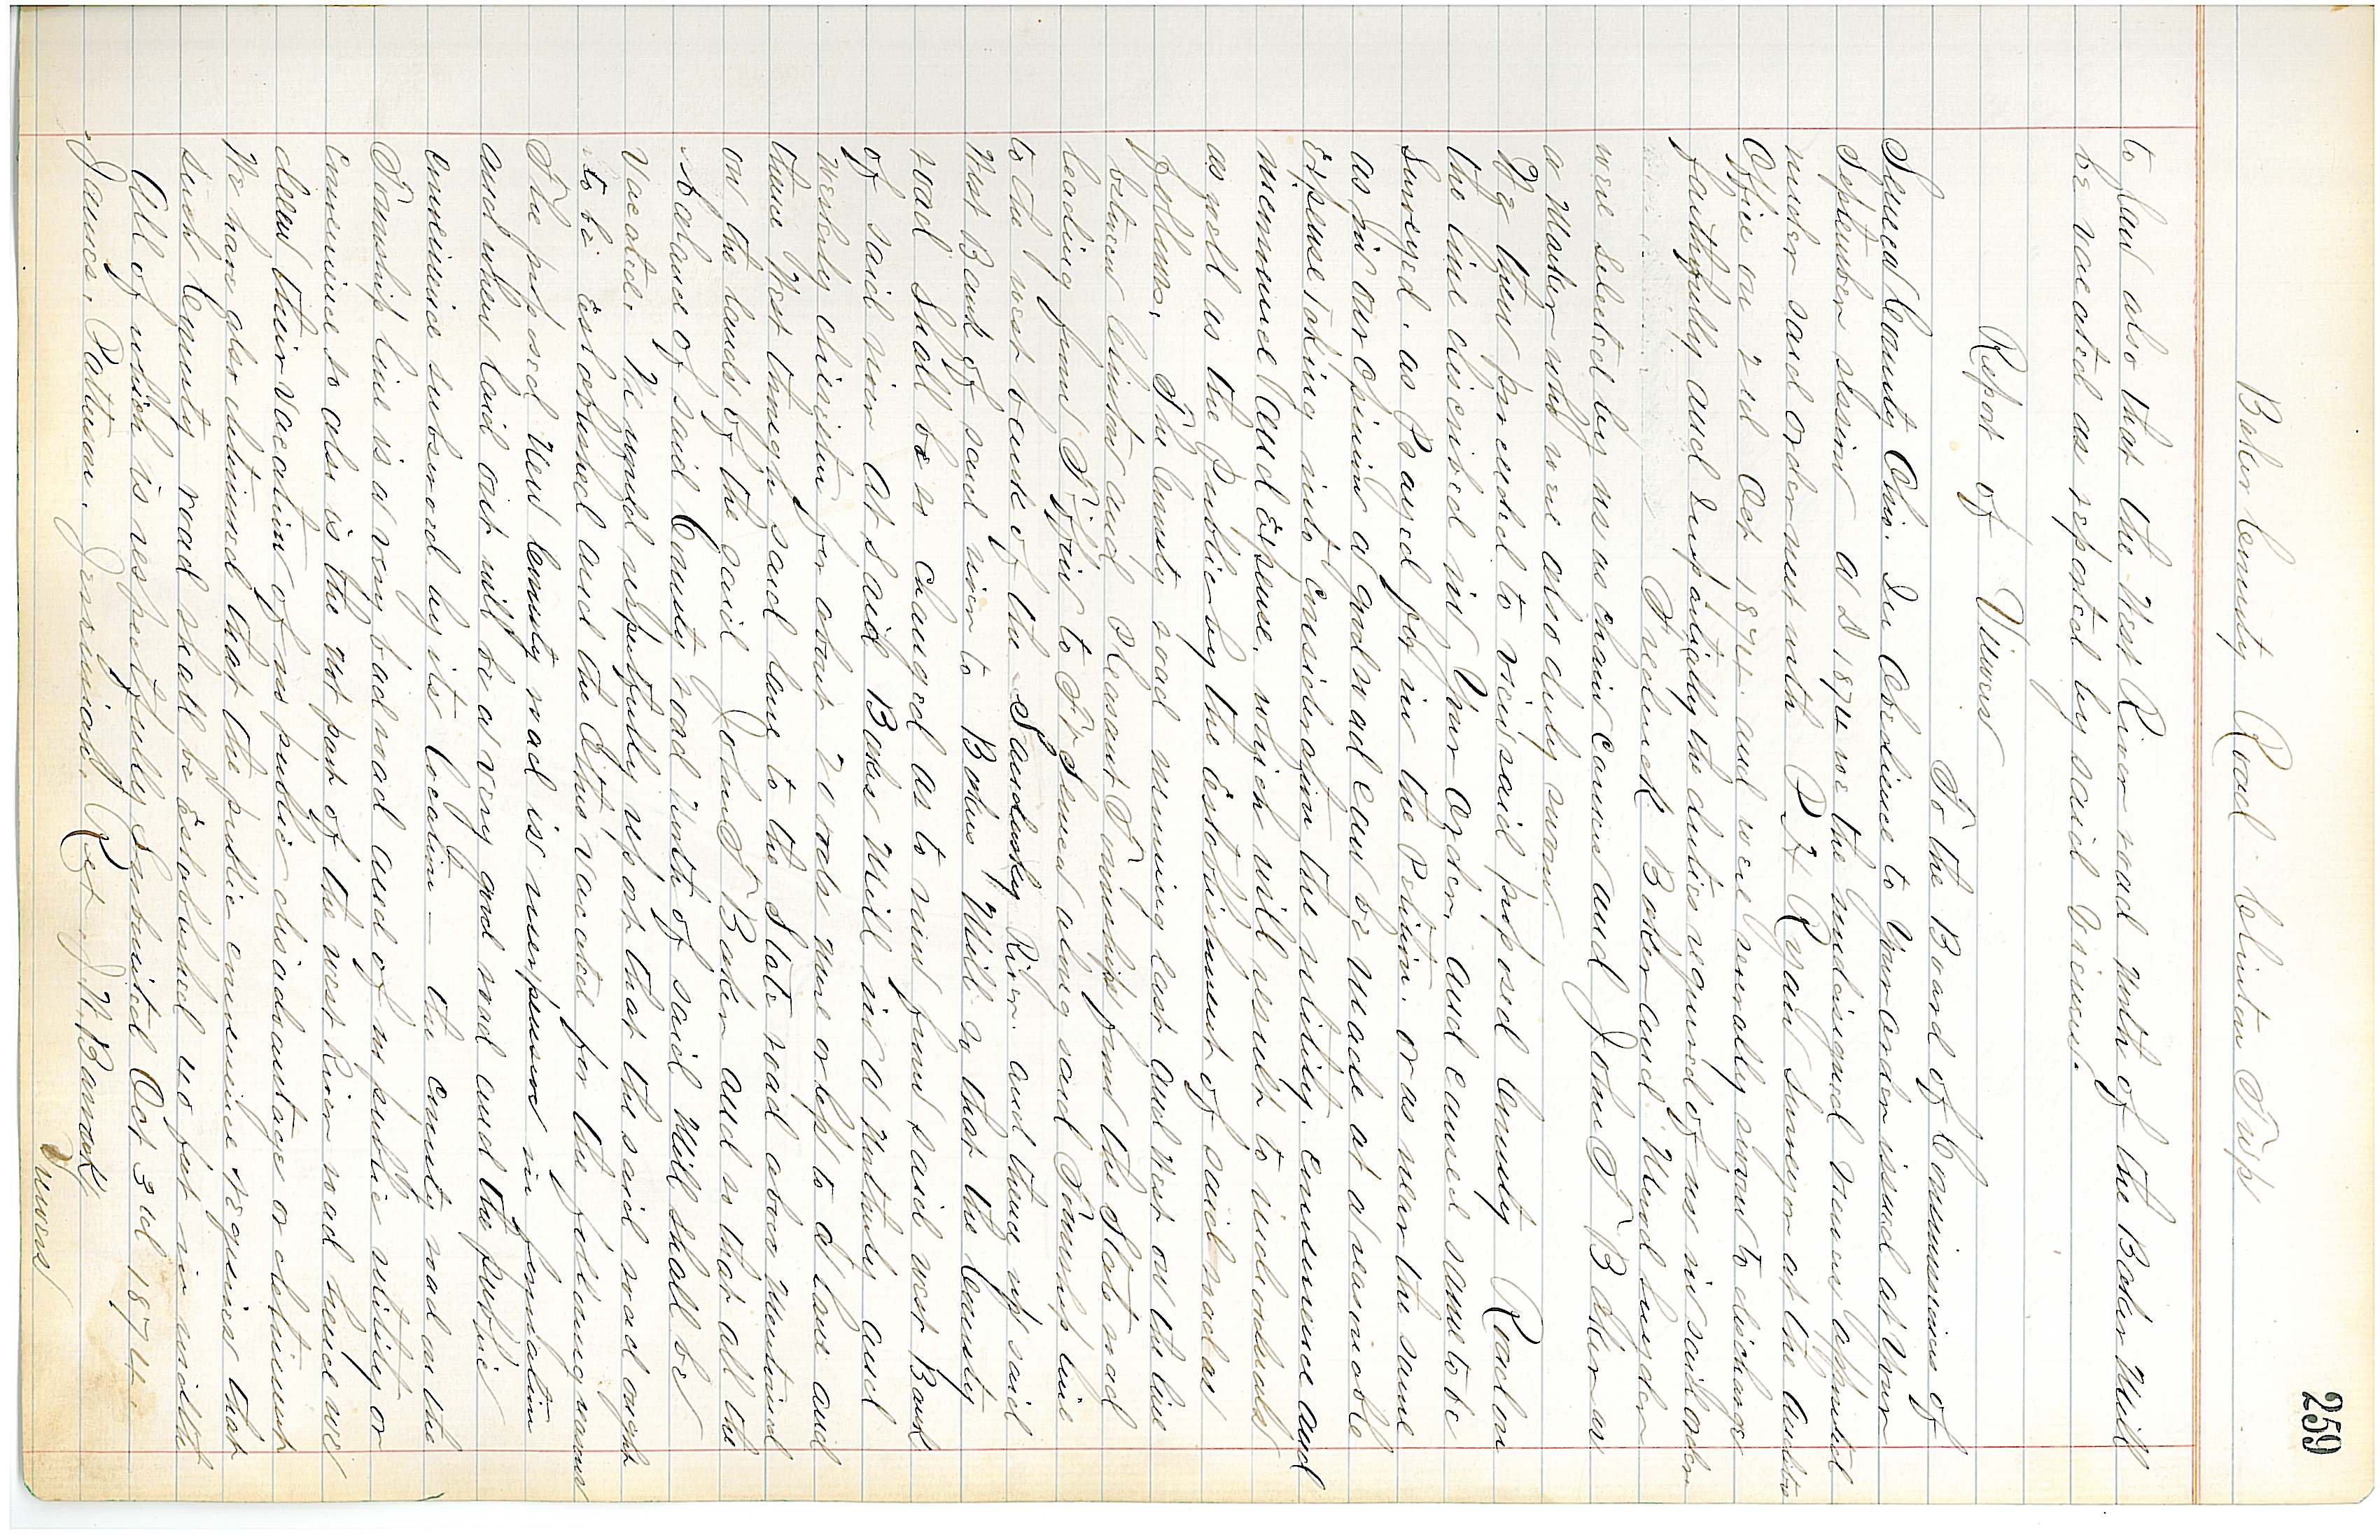 259
Baker County Road. Clinton Twp
to farm also that the West River road north of the Baker Mill
be vacated as reported by said viewers.
Report of Viewers
To the Board of Commissioners of
Seneca County Ohio. In Obedience to Your order issued at Your
September session A D 1874 we the undersigned viewers appointed
under said order met with P H Ryan Surveyor at the Auditors
Office on 2nd Oct 1874 and were severally sworn to discharge
faithfully and impartially the duties required of us in said order
Frederick Baker and
were selected by us as chain carriers and John F Baker as
a Marker who were also duly sworn.
We then proceeded to view said proposed County Road on
the line described in Your Order, and caused same to be
Surveyed. as Prayed for in the Petition. or as near the same
as in our Opinion a good road can be made at a reasonable
Expense taking into Consideration the utility, convenience and
inconvenience and Expense, which will result to individuals
as well as the Public by the Establishment of said road as
follows. The County road running East and West on the line
between Clinton and Pleasant Townships from the State road
leading from Tiffin to Ft Seneca along said Township line
to the west bank of the Sandusky River. and thence up said
West Bank of said river to Bakers Mill so that the County
road Shall be so changed as to run from said west Bank
of said river at said Bakers Mill in a Westerly and
westerly direction for about 20 rods more or less to a lane and
thence West through said lane to the State road above mentioned
on the lands of the said John F Baker and so that all the
balance of said County road north of said Mill shall be
vacated. We would respectfully report that the said road ought
to be Established and the Other vacated for the following reasons
The proposed New County road is inexpensive in formation
and when laid out will be a very good road and the public
convenience subserved by its location - the County road on the
Township line is a very bad road and of no public utility or
convenience so also is the part of the west River road hence we
deem their vacation of no public disadvantage or detriment
We have also determined that the public convenience requires that
such County road shall be Established 40 feet in width
All of which is respectfully Submitted Oct 3rd 1874.
James. Patterson. Jeremiah. Rex J. W. Barrack
Viewers